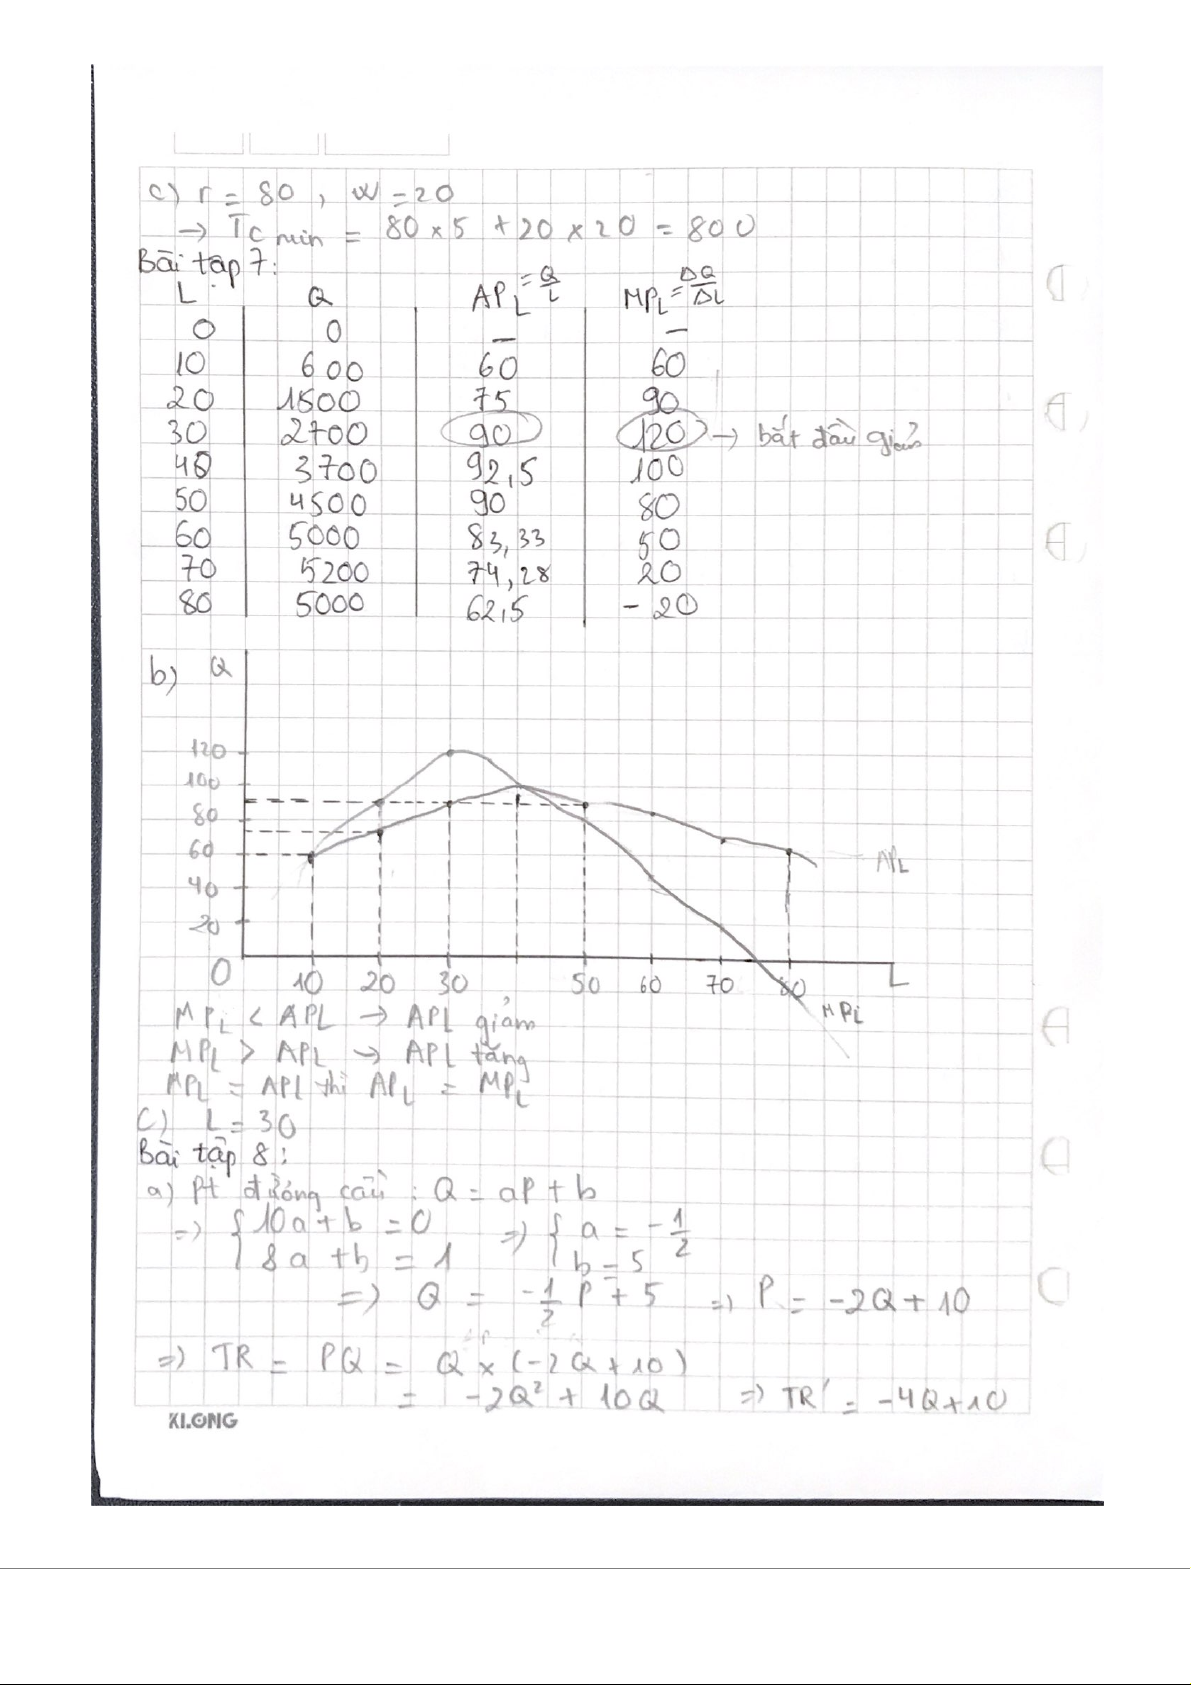 c) r = 80 , w = 20
→ TC min = 80 × 5 + 20 × 20 = 800
Bài tập 7:
L Q APL = Q/L MPL = ΔQ/ΔL
0 0 – –
10 600 60 60
20 1500 75 90
30 2700 90 120 → bắt đầu giảm
40 3700 92,5 100
50 4500 90 80
60 5000 83,33 50
70 5200 74,28 20
80 5000 62,5 - 20
b) Q
120
100
80
60
40
20
APL
O 10 20 30 50 60 70 80 L
MPL
MPL < APL → APL giảm
MPL > APL → APL tăng
MPL = APL thì APL = MPL
C) L = 30
Bài tập 8:
a) Pt đường cầu : Q = aP + b
=> { 10a + b = 0 => { a = -1/2
8a + b = 1 b = 5
=> Q = -1/2 P + 5 => P = -2Q + 10
=> TR = PQ = Q × (-2Q + 10)
= -2Q² + 10Q => TR' = -4Q + 10
KLONG